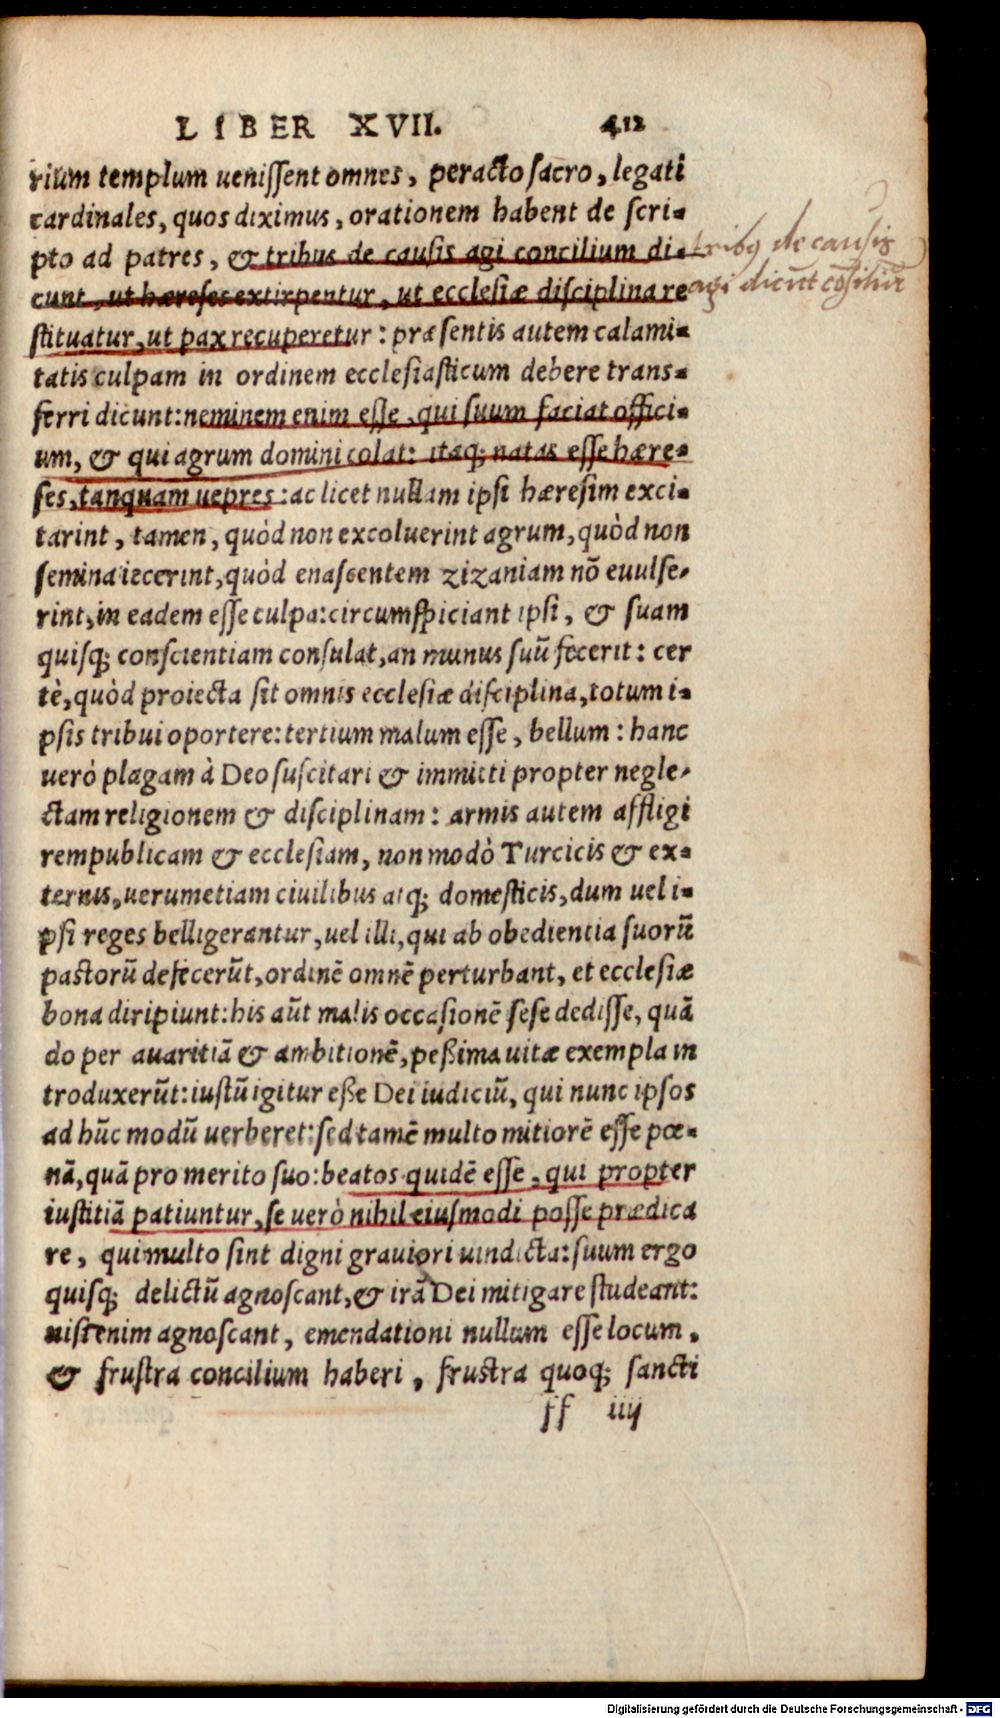 LIBER XVII. 412
rium templum uenissent omnes, peracto sacro, legati
cardinales, quos diximus, orationem habent de scri-
pto ad patres, & tribus de causis agi concilium di-
cunt, ut hæreses extirpentur, ut ecclesiæ disciplina re
stituatur, ut pax recuperetur: præsentis autem calami-
tatis culpam in ordinem ecclesiasticum debere trans-
ferri dicunt: neminem enim esse, qui suum faciat offici-
um, & qui agrum domini colat: itaq; natas esse hære-
ses, tanquam uepres: ac licet nullam ipsi hæresim exci-
tarint, tamen, quòd non excoluerint agrum, quòd non
semina iecerint, quòd enascentem zizaniam nõ euulse-
rint, in eadem esse culpa: circumspiciant ipsi, & suam
quisq; conscientiam consulat, an munus suũ fecerit: cer
tè, quòd proiecta sit omnis ecclesiæ disciplina, totum i-
psis tribui oportere: tertium malum esse, bellum: hanc
uerò plagam à Deo suscitari & immitti propter negle-
ctam religionem & disciplinam: armis autem affligi
rempublicam & ecclesiam, non modò Turcicis & ex-
ternis, uerumetiam ciuilibus atq; domesticis, dum uel i-
psi reges belligerantur, uel illi, qui ab obedientia suorũ
pastorũ defecerũt, ordinẽ omnẽ perturbant, et ecclesiæ
bona diripiunt: his aũt malis occasionẽ sese dedisse, quã
do per auaritiã & ambitionẽ, peßima uitæ exempla in
troduxerũt: iustũ igitur eße Dei iudiciũ, qui nunc ipsos
ad hũc modũ uerberet: sed tamẽ multo mitiorẽ esse pœ-
nã, quã pro merito suo: beatos quidẽ esse, qui propter
iustitiã patiuntur, se uerò nihil eiusmodi posse prædica
re, qui multo sint digni grauiori uindicta: suum ergo
quisq; delictũ agnoscant, & irã Dei mitigare studeant:
nisi enim agnoscant, emendationi nullum esse locum,
& frustra concilium haberi, frustra quoq; sancti
ff iiij
tribus de causis
agi dicũt cõsiliũ
Digitalisierung gefördert durch die Deutsche Forschungsgemeinschaft - DFG